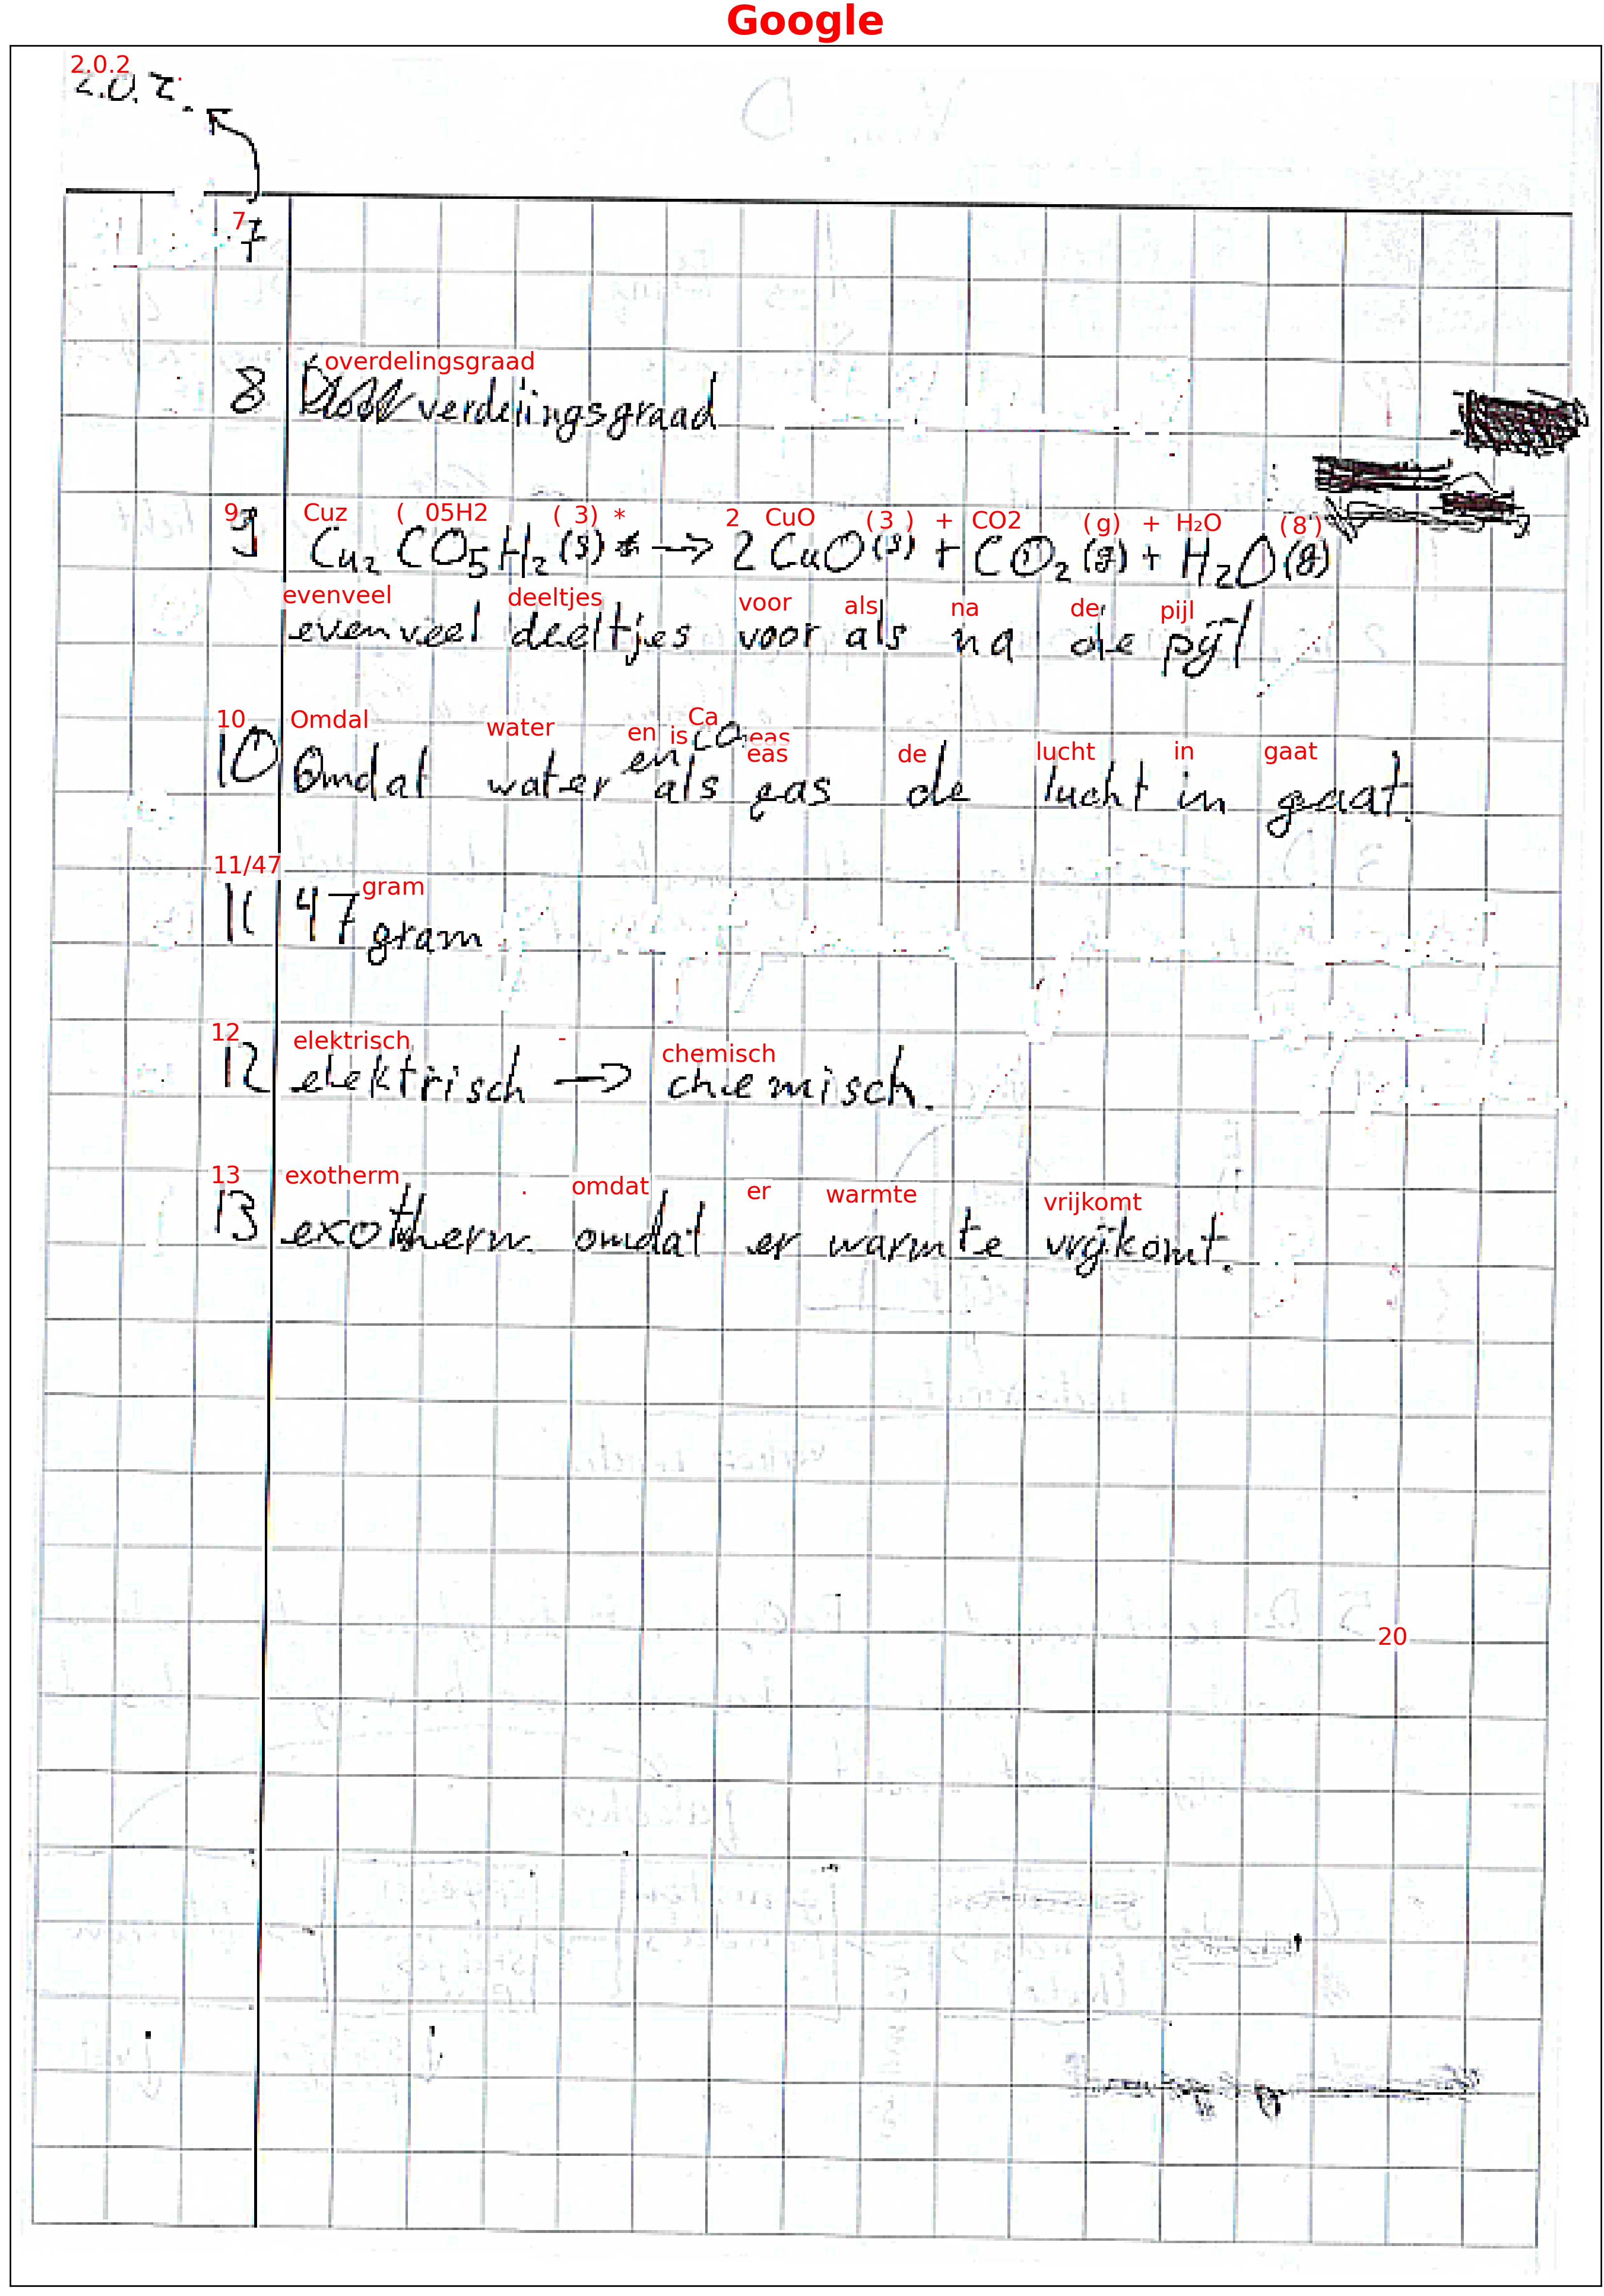 Google
2.0.2
2.0.2.
7
7
overdelingsgraad
8 verdelingsgraad
9 Cuz ( 05H2 ( 3) * 2 CuO (3 ) + CO2 (g) + H₂O (8)
9 Cu₂CO₅H₂(s) → 2CuO(s) + CO₂(g) + H₂O(g)
evenveel deeltjes voor als na de pijl
evenveel deeltjes voor als na de pijl
10 Omdal water en is Ca eas eas de lucht in gaat
en CO₂
10 Omdat water als gas de lucht in gaat.
11/47 gram
11 47 gram
12 elektrisch - chemisch
12 elektrisch → chemisch.
13 exotherm . omdat er warmte vrijkomt
13 exotherm. omdat er warmte vrijkomt.
20